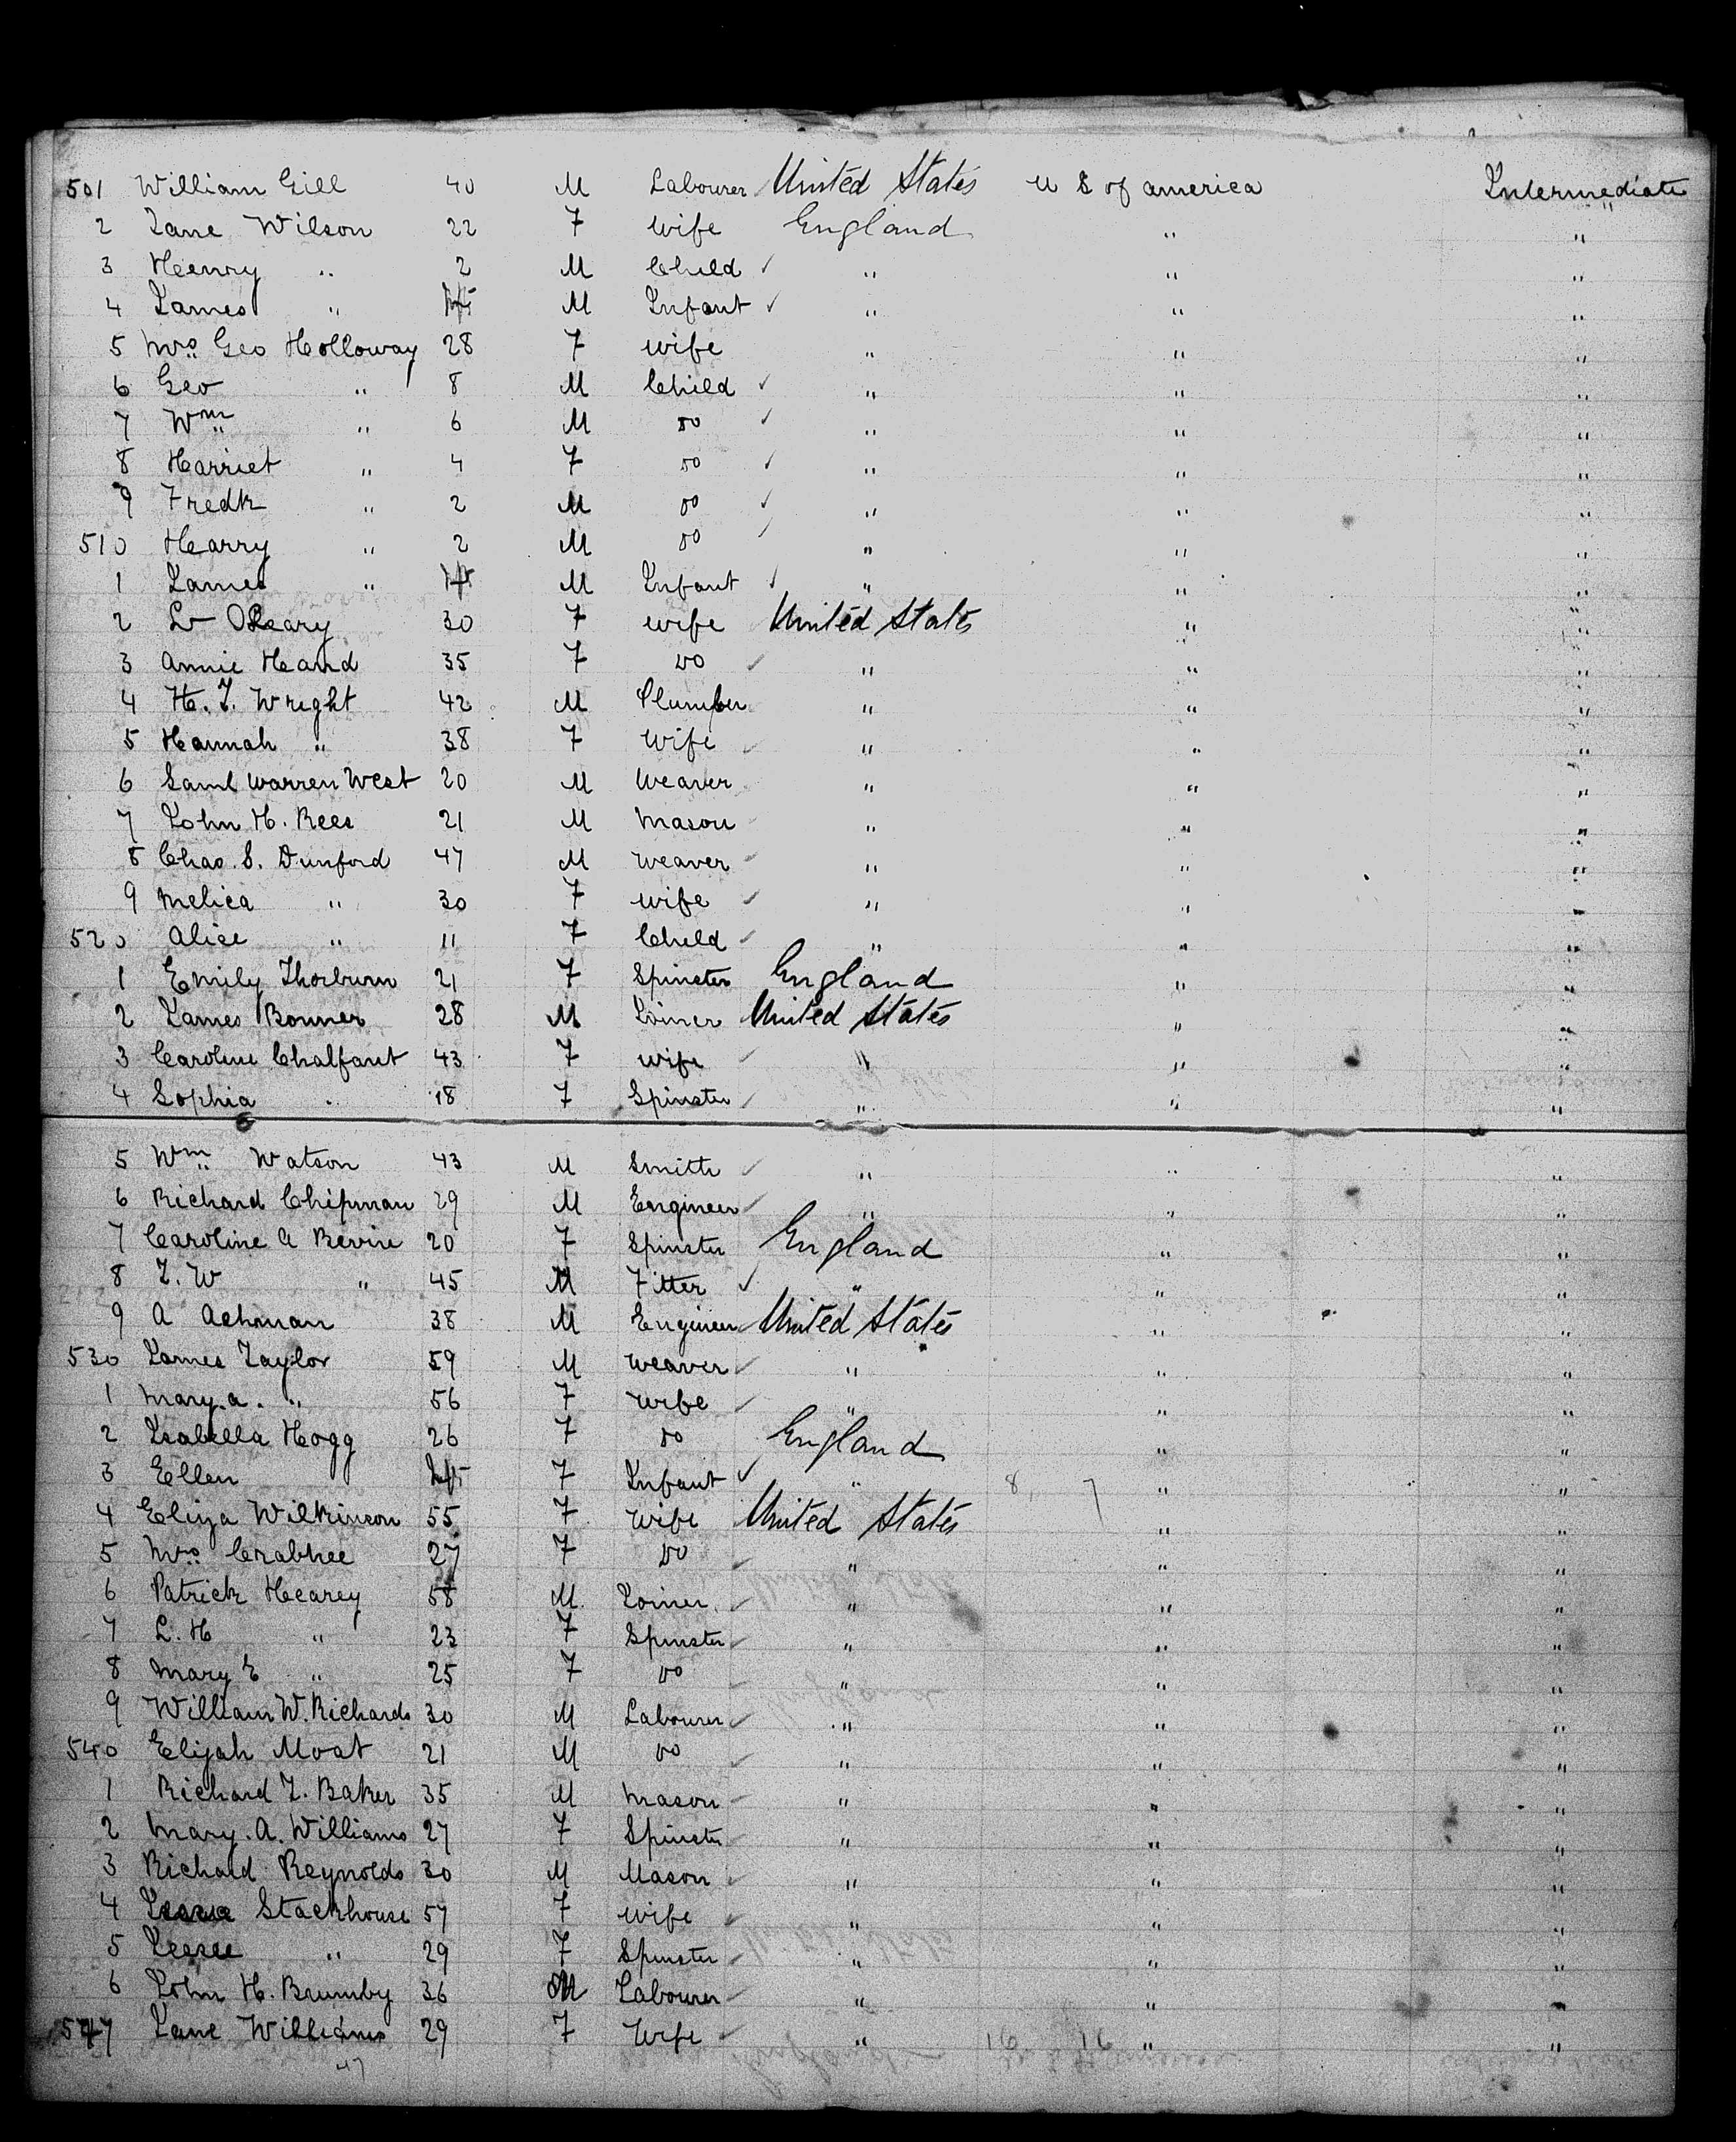 501 William Gill 40 M Labourer United States U S of america Intermediate
2 Jane Wilson 22 F Wife England " "
3 Henry " 2 M Child " " "
4 James " Inf M Infant " " "
5 Mrs Geo Holloway 28 F Wife " " "
6 Geo " 8 M Child " " "
7 Wm " 6 M Do " " "
8 Harriet " 4 F Do " " "
9 Fredk " 2 M Do " " "
510 Harry " 2 M Do " " "
1 James " Inf M Infant " " "
2 O'Leary 30 F Wife United States " "
3 Annie Heand 35 F Do " " "
4 H. J. Wright 42 M Plumber " " "
5 Hannah " 38 F Wife " " "
6 Saml Warren West 20 M Weaver " " "
7 John H. Rees 21 M Mason " " "
8 Chas. S. Dunford 47 M Weaver " " "
9 Melica " 30 F Wife " " "
520 Alice " 11 F Child " " "
1 Emily Thorburn 21 F Spinster England " "
2 James Bonner 28 M Joiner United States " "
3 Caroline Chalfant 43 F Wife " " "
4 Sophia " 18 F Spinster " " "
5 Wm Watson 43 M Smith " " "
6 Richard Chipman 29 M Engineer " " "
7 Caroline A Bevire 20 F Spinster England " "
8 J. W " 45 M Fitter " " "
9 A Achman 38 M Engineer United States " "
530 James Taylor 59 M Weaver " " "
1 Mary. a. " 56 F Wife " " "
2 Isabella Hogg 26 F Do England " "
3 Ellen Inf F Infant " 8 7 " "
4 Eliza Wilkinson 55 F Wife United States " "
5 Mrs Crabtree 27 F Do " " "
6 Patrick Hearey 58 M Joiner " " "
7 L. H " 23 F Spinster " " "
8 Mary E " 25 F Do " " "
9 William W. Richards 30 M Labourer " " "
540 Elijah Moat 21 M Do " " "
1 Richard J. Baker 35 M Mason " " "
2 Mary. A. Williams 27 F Spinster " " "
3 Richard Reynolds 30 M Mason " " "
4 Stackhouse 57 F Wife " " "
5 " 29 F Spinster " " "
6 John H. Brumby 36 M Labourer " " "
547 Jane Williams 29 F Wife " 16 16 " "
47